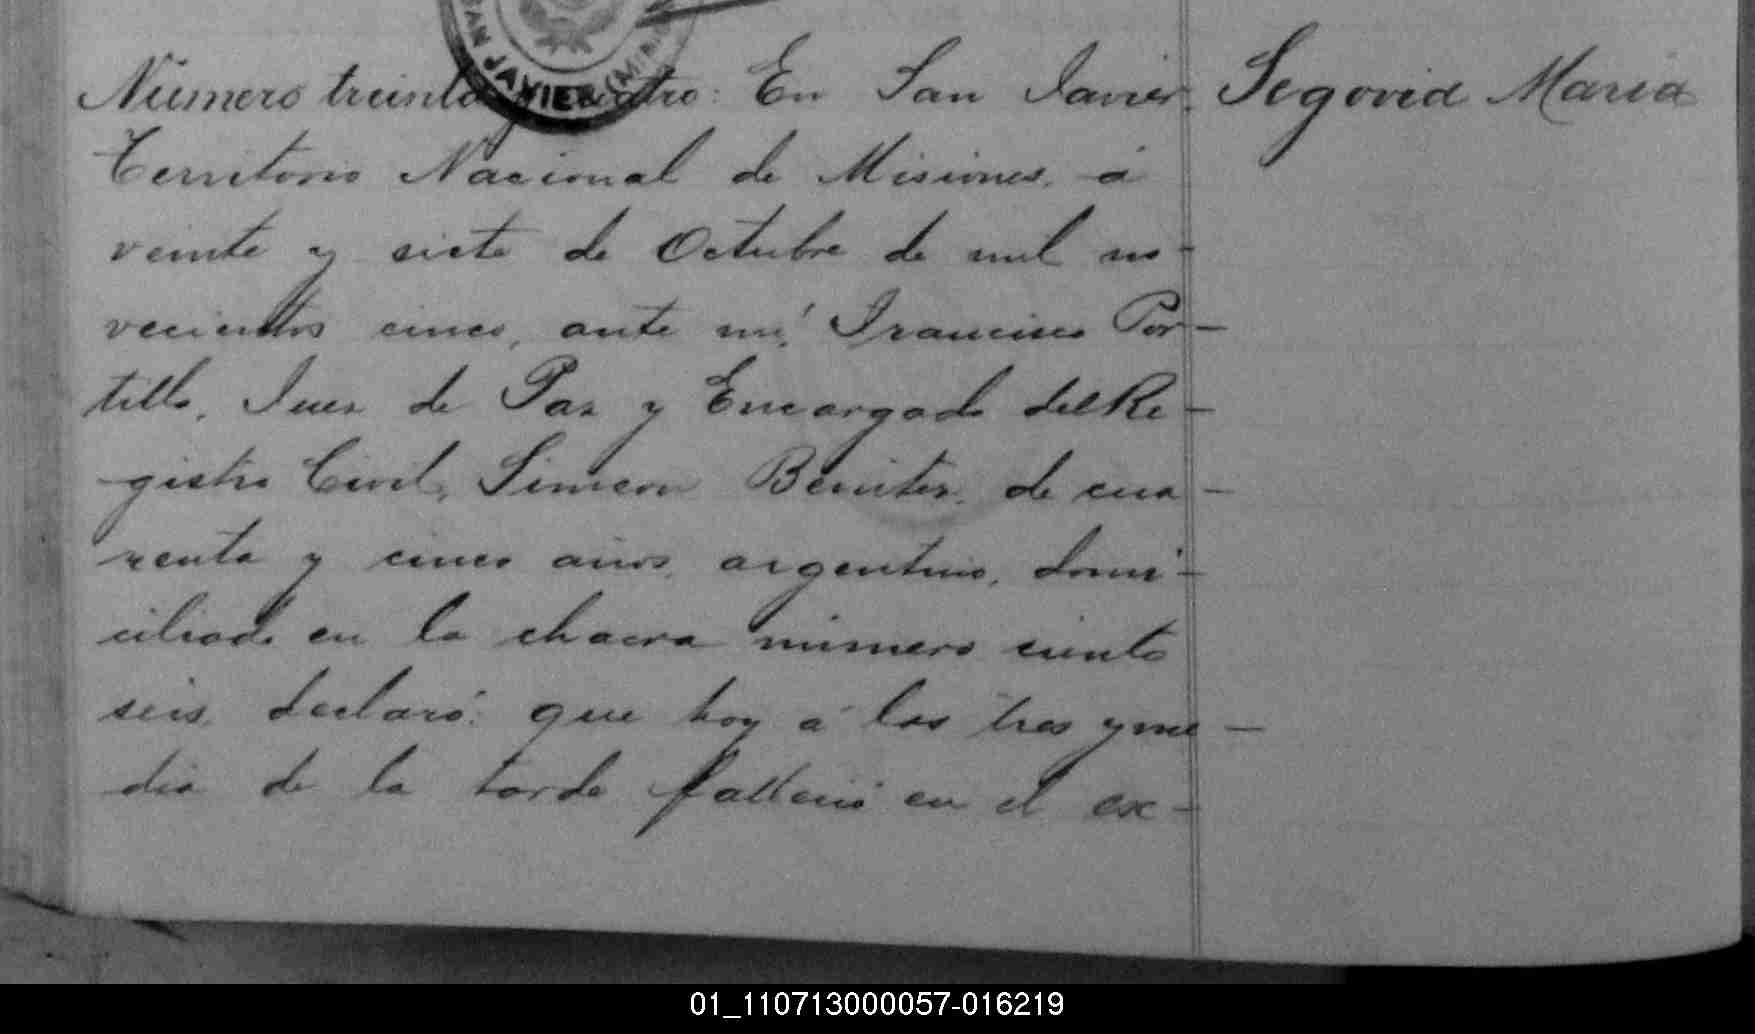 SAN JAVIER (MIS
Número treinta y cuatro: En San Javier Segovia Maria
Territorio Nacional de Misiones, á
veinte y siete de Octubre de mil no-
vecientos cinco, ante mí, Francisco Por-
tillo, Juez de Paz y Encargado del Re-
gistro Civil, Simeon Benitez, de cua-
renta y cinco años, argentino, domi-
ciliado en la chacra número ciento
seis, declaró: que hoy á las tres y me-
dia de la tarde falleció en el ex-
01_110713000057-016219